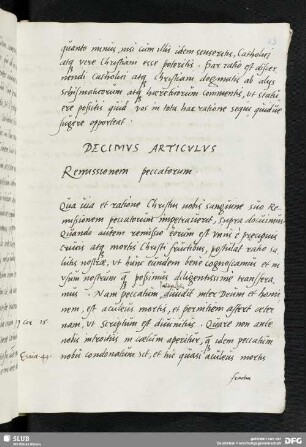 quanto minus, nisi cum illis idem senseritis, Catholici
atq vere Christiani esse poteritis. Par ratio est discer
nendi Catholici atq Christiani dogmatis ab alijs
schismaticorum atq hæreticorum commentis, ut statu
ere possitis quid vos in tota hac ratione sequi quidue
fugere oporteat.
DECIMVS ARTICVLVS
Remissionem peccatorum.
Qua uia et ratione Christus nobis sanguine suo Re-
missionem peccatorum impetrauerit, supra docuimus.
Quando autem remissio eorum est vnus e præcipuis
crucis atq mortis Christi fructibus, postulat ratio sa
lutis nostræ, ut hunc eundem bene cognoscamus et in
vsum nostrum q possimus diligentissime transfera
mus. Nam peccatum diuidit inter Deum et homi
nem, est aculeus mortis, et peccatum affert æter
nam, ut scriptum est diuinitus. Quare non ante
nobis introitus in cœlum aperitur, q idem peccatum
nobis condonatum sit, et hic quasi aculeus mortis
1 Cor 15.
Esaiæ 44.
SLUB
Wir führen Wissen.
DFG